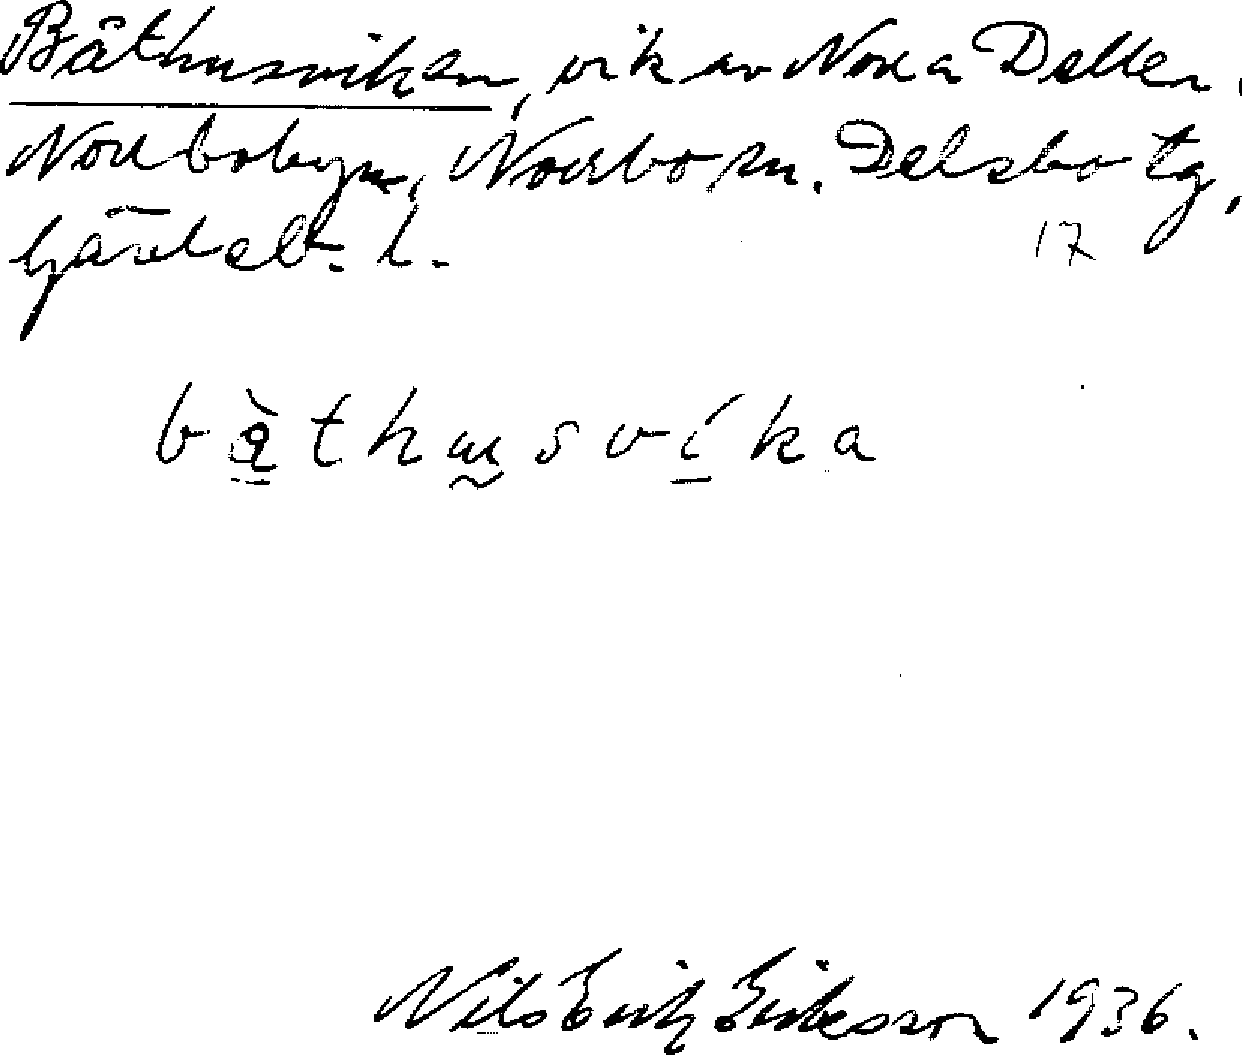 Båthusviken, vik av Norra Dellen.
Norrbobyn, Norrbo sn. Delsbo tg,
Gävleb. l. 17
båthusvika
Nils Erik Eriksson 1936.